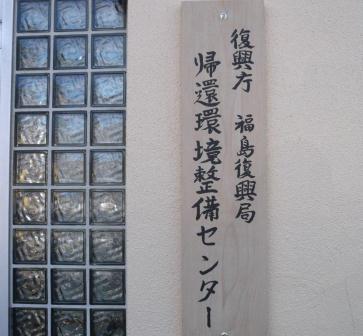 復興庁 福島復興局
帰還環境整備センター